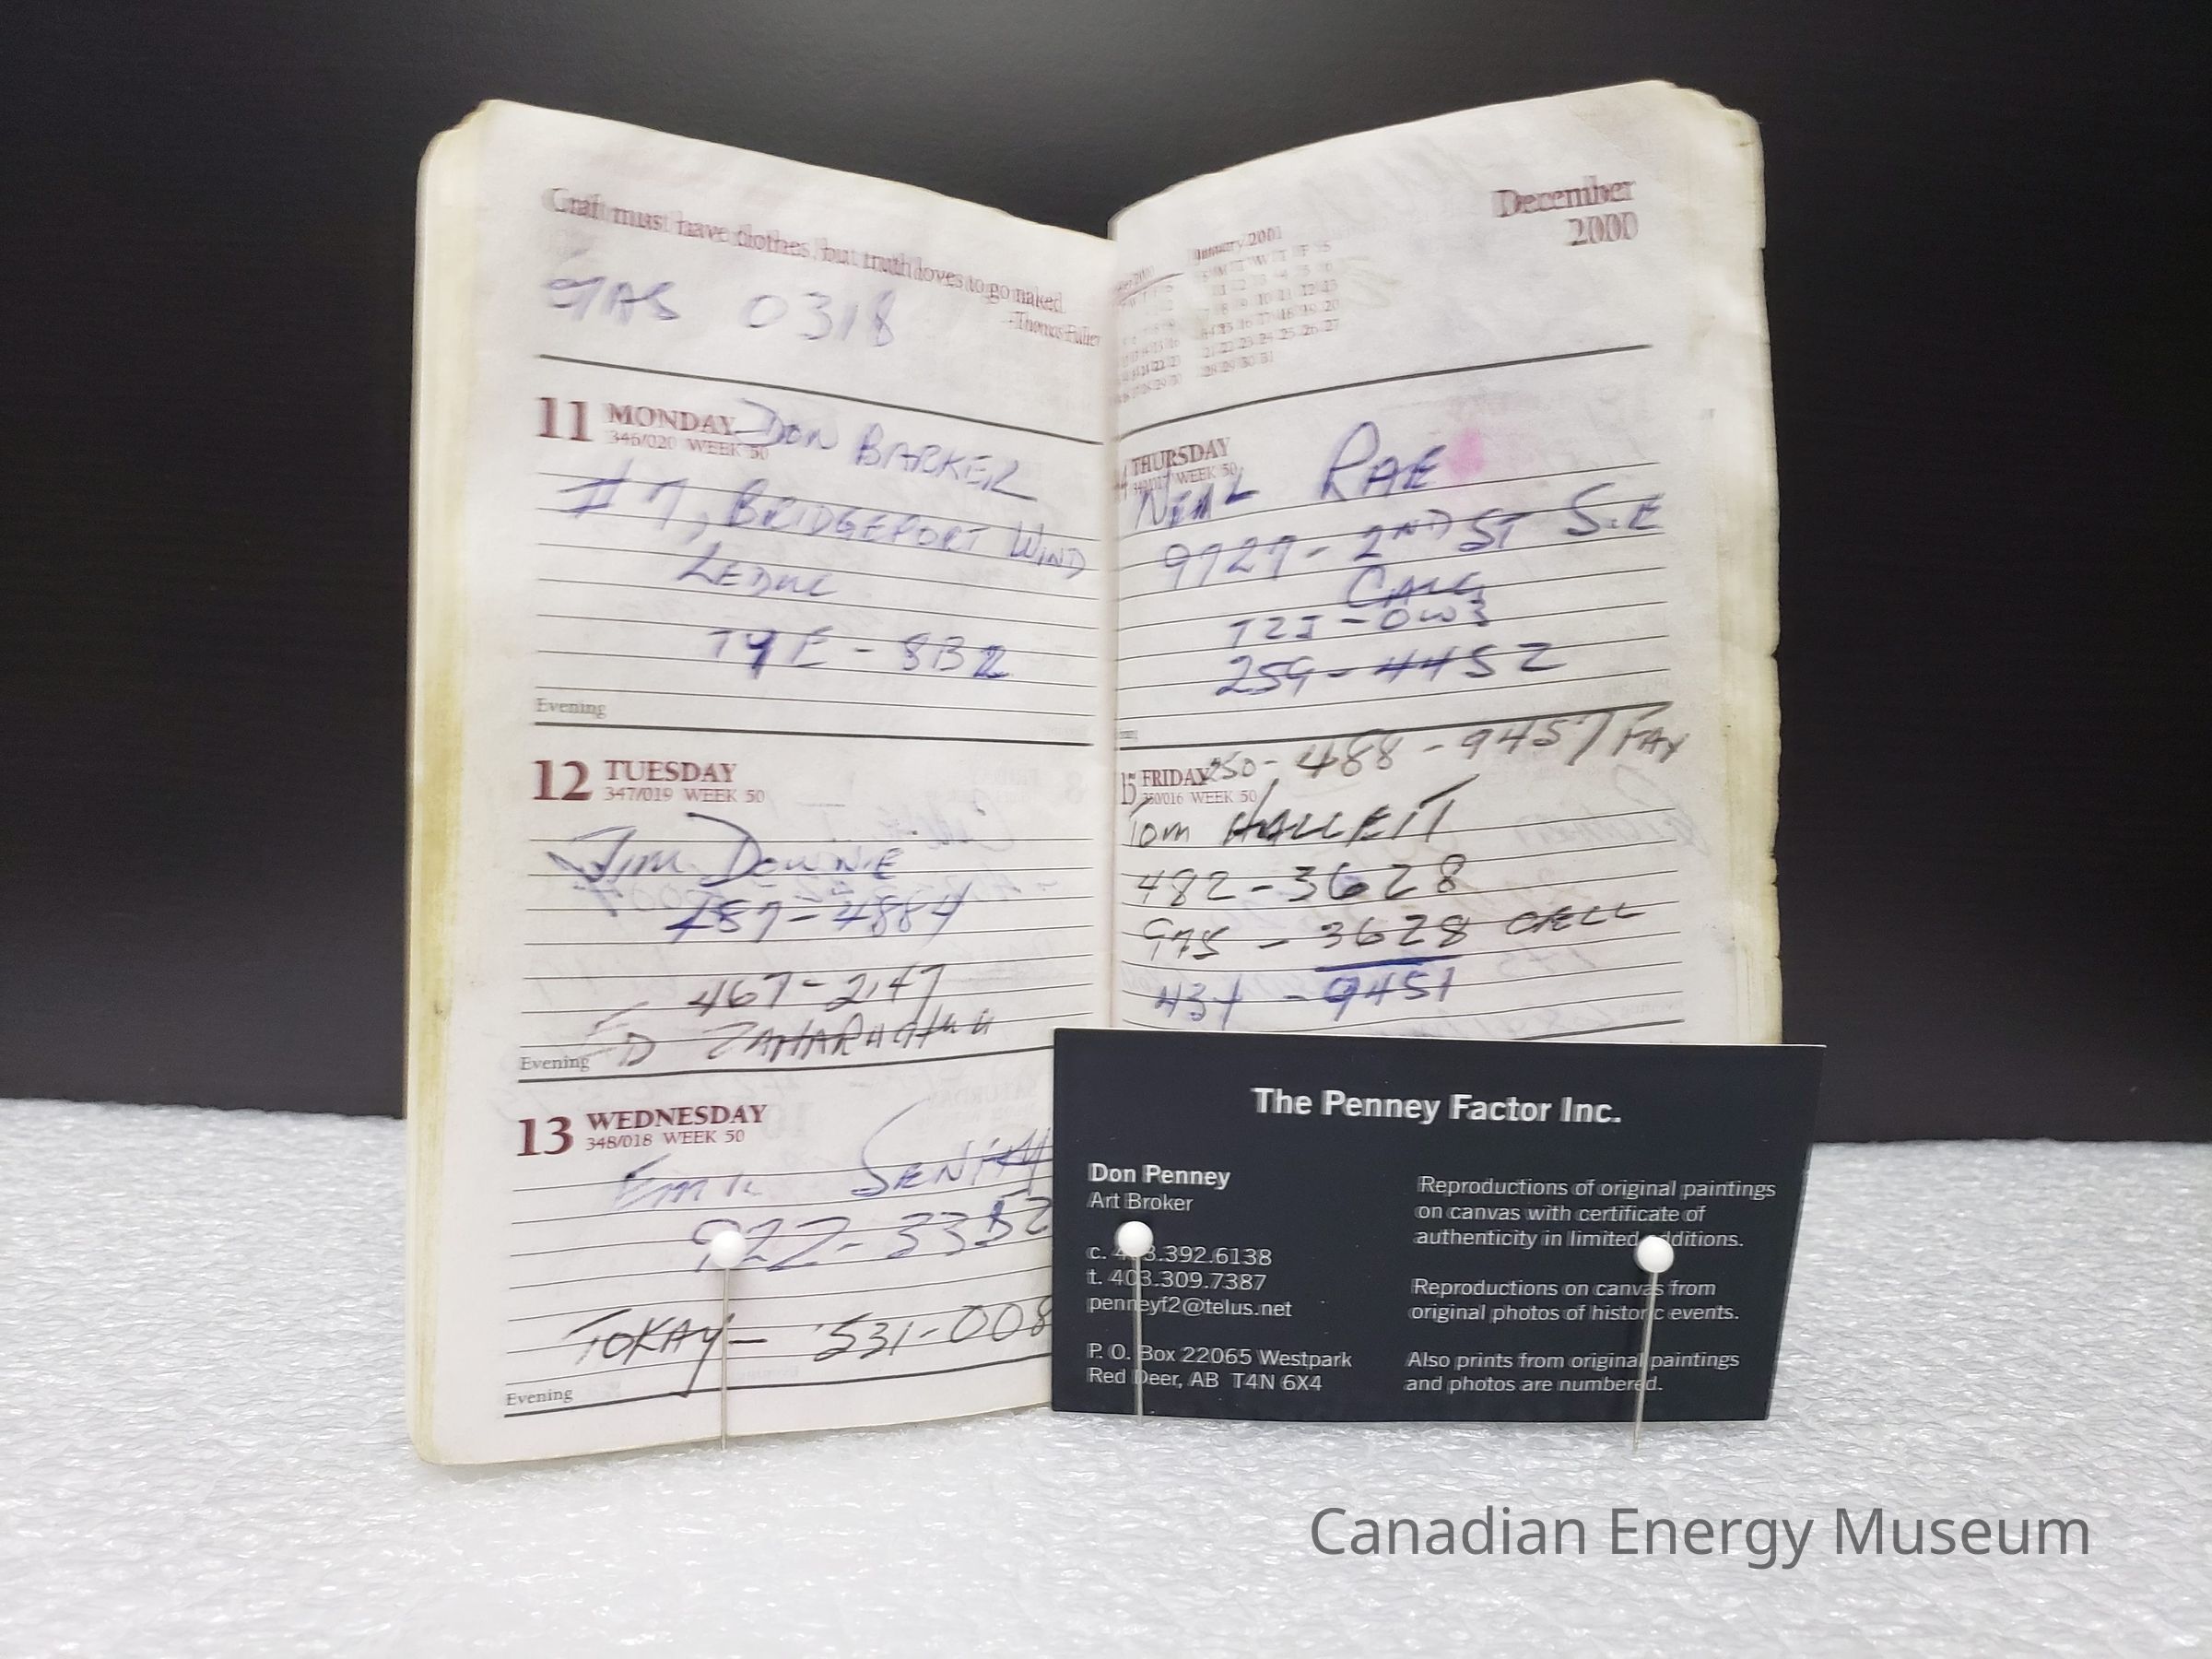 Craft must have clothes, but truth loves to go naked.
-Thomas Fuller
0318
11 MONDAY
346/020 WEEK 50
DON BARKER
#7, BRIDGEPORT WIND
LEDUC
T9E - 8B2
Evening
12 TUESDAY
347/019 WEEK 50
JIM DOWNIE
487-4884
467-2147
ED
Evening
13 WEDNESDAY
348/018 WEEK 50
922-3352
TOKAY - 531-008
Evening
December
2000
January 2001
THURSDAY
WEEK 50
NEAL RAE
9727 - 2ND ST S.E
CALG
T2J - 0W3
259-4452
250-488-9457 FAX
15 FRIDAY
350/016 WEEK 50
TOM HALLETT
482-3628
975-3628 CELL
431-9451
The Penney Factor Inc.
Don Penney
Art Broker
c. 403.392.6138
t. 403.309.7387
penneyf2@telus.net
P. O. Box 22065 Westpark
Red Deer, AB T4N 6X4
Reproductions of original paintings
on canvas with certificate of
authenticity in limited additions.
Reproductions on canvas from
original photos of historic events.
Also prints from original paintings
and photos are numbered.
Canadian Energy Museum